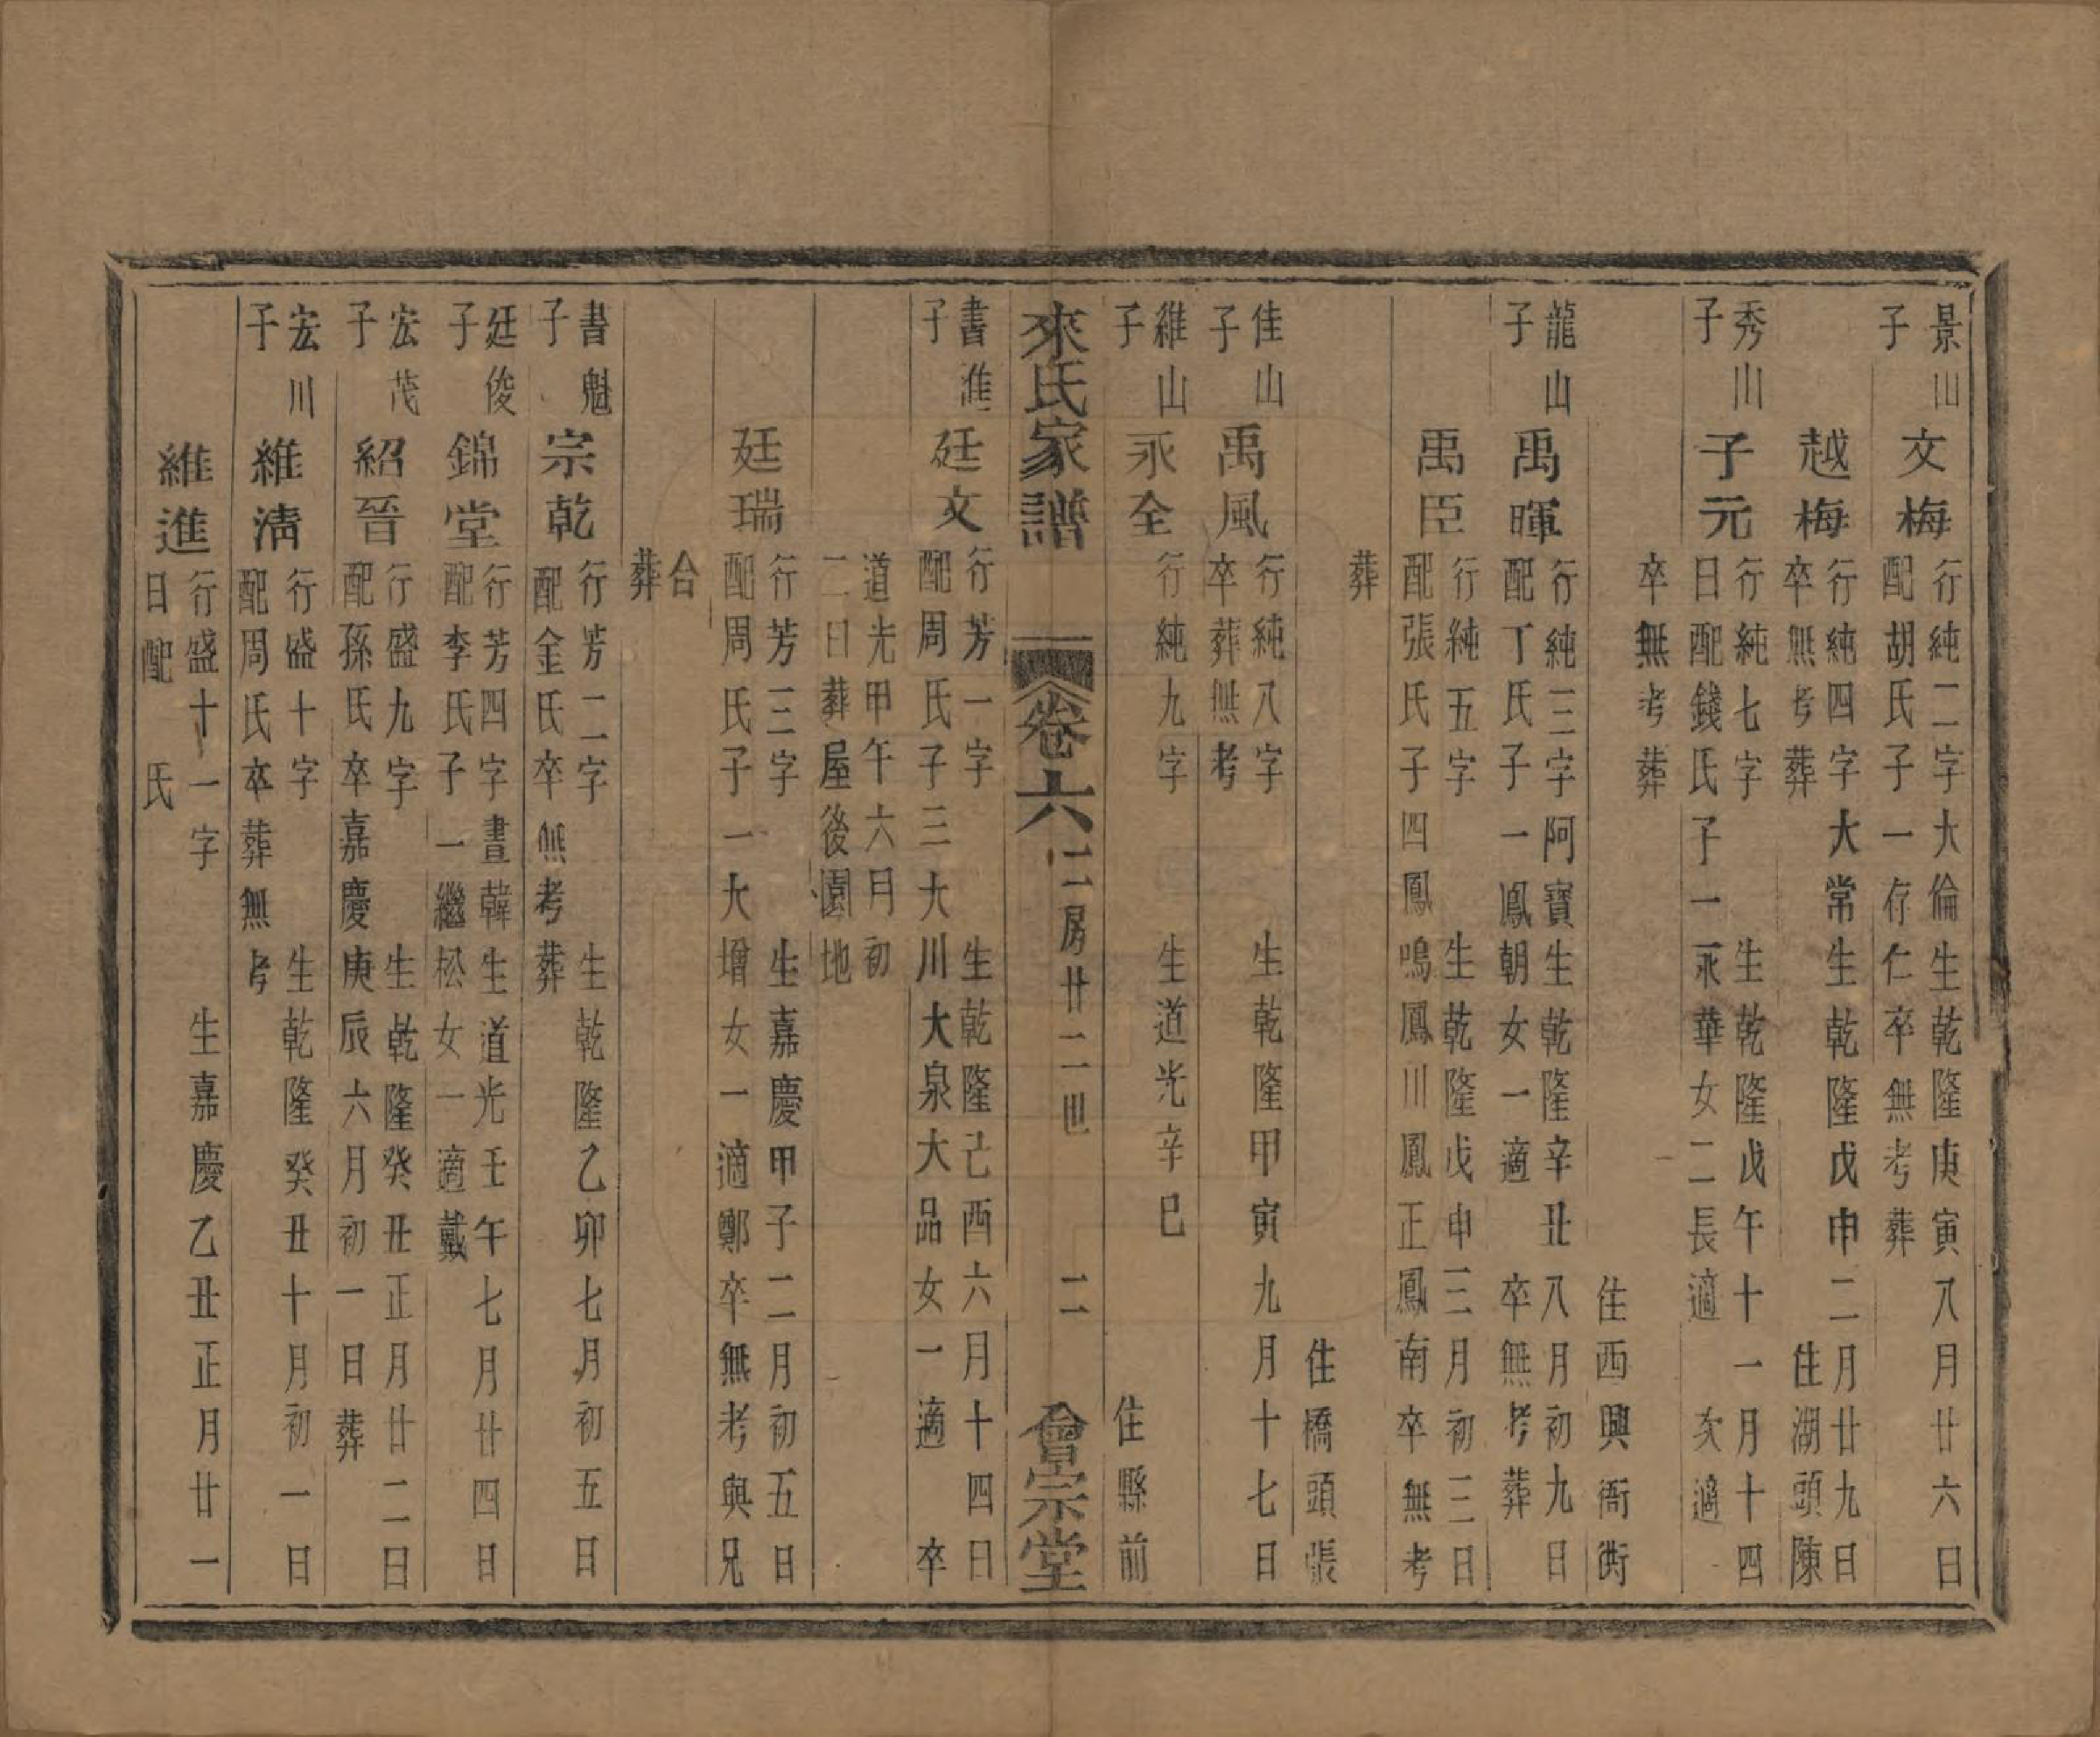 景山子 文梅 行純二字大倫生乾隆庚寅八月廿六日
配胡氏子一存仁卒無考葬
越梅 行純四字大常生乾隆戊申二月廿九日
卒無考葬 住湖頭陳
秀山子 子元 行純七字 生乾隆戊午十一月十四
日配錢氏子一永華女二長適 次適
卒無考葬
住西興衙衖
龍山子 禹暉 行純三字阿寶生乾隆辛丑八月初九日
配丁氏子一鳳朝女一適 卒無考葬
禹臣 行純五字 生乾隆戊申三月初三日
配張氏子四鳳鳴鳳川鳳正鳳南卒無考
葬
住橋頭張
佳山子 禹風 行純八字 生乾隆甲寅九月十七日
卒葬無考
維山子 永全 行純九字 生道光辛巳
住縣前
來氏家譜 卷六 二房廿二世 二 會宗堂
書進子 廷文 行芳一字 生乾隆己酉六月十四日
配周氏子三大川大泉大品女一適 卒
道光甲午六月初
二日葬屋後園地
廷瑞 行芳三字 生嘉慶甲子二月初五日
配周氏子一大增女一適鄭卒無考與兄
合
葬
書魁子 宗乾 行芳二字 生乾隆乙卯七月初五日
配金氏卒無考葬
廷俊子 錦堂 行芳四字書韓生道光壬午七月廿四日
配李氏子一繼松女一適戴
宏茂子 紹晉 行盛九字 生乾隆癸丑正月廿二日
配孫氏卒嘉慶庚辰六月初一日葬
宏川子 維淸 行盛十字 生乾隆癸丑十月初一日
配周氏卒葬無考
維進 行盛十一字 生嘉慶乙丑正月廿一
日配 氏